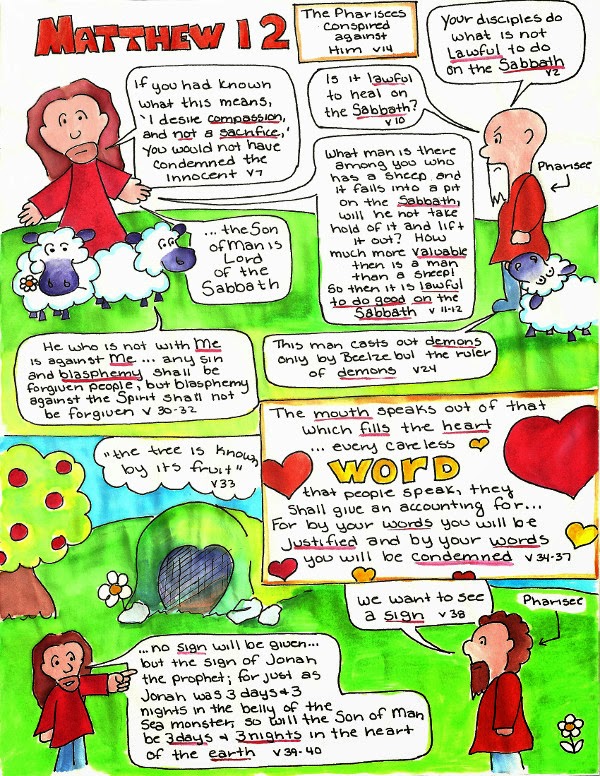 MATTHEW 12
The Pharisees
conspired
against
Him v14
Your disciples do
what is not
Lawful to do
on the Sabbath
v2
If you had known
what this means,
'I desire compassion,
and not a sacrifice,'
you would not have
condemned the
innocent v7
Is it lawful
to heal on
the Sabbath?
v10
Pharisee
What man is there
among you who
has a sheep and
it falls into a pit
on the Sabbath,
will he not take
hold of it and lift
it out? How
much more valuable
then is a man
than a sheep!
So then it is lawful
to do good on the
Sabbath v 11-12
...the Son
of Man is
Lord
of the
Sabbath
He who is not with Me
is against Me ... any sin
and blasphemy shall be
forgiven people, but blasphemy
against the Spirit shall not
be forgiven v 30-32
This man casts out demons
only by Beelzebul the ruler
of demons v24
The mouth speaks out of that
which fills the heart
... every careless
WORD
that people speak, they
shall give an accounting for...
For by your words you will be
justified and by your words
you will be condemned v 34-37
"the tree is known
by its fruit"
v33
we want to see
a sign v38
Pharisee
...no sign will be given...
but the sign of Jonah
the prophet; for just as
Jonah was 3 days & 3
nights in the belly of the
Sea monster, so will the Son of Man
be 3 days & 3 nights in the heart
of the earth v 39-40